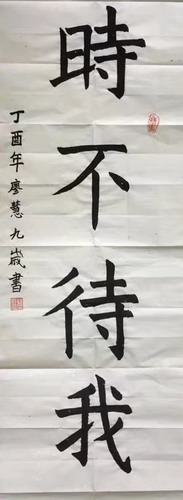 時不待我
丁酉年廖慧九歲書